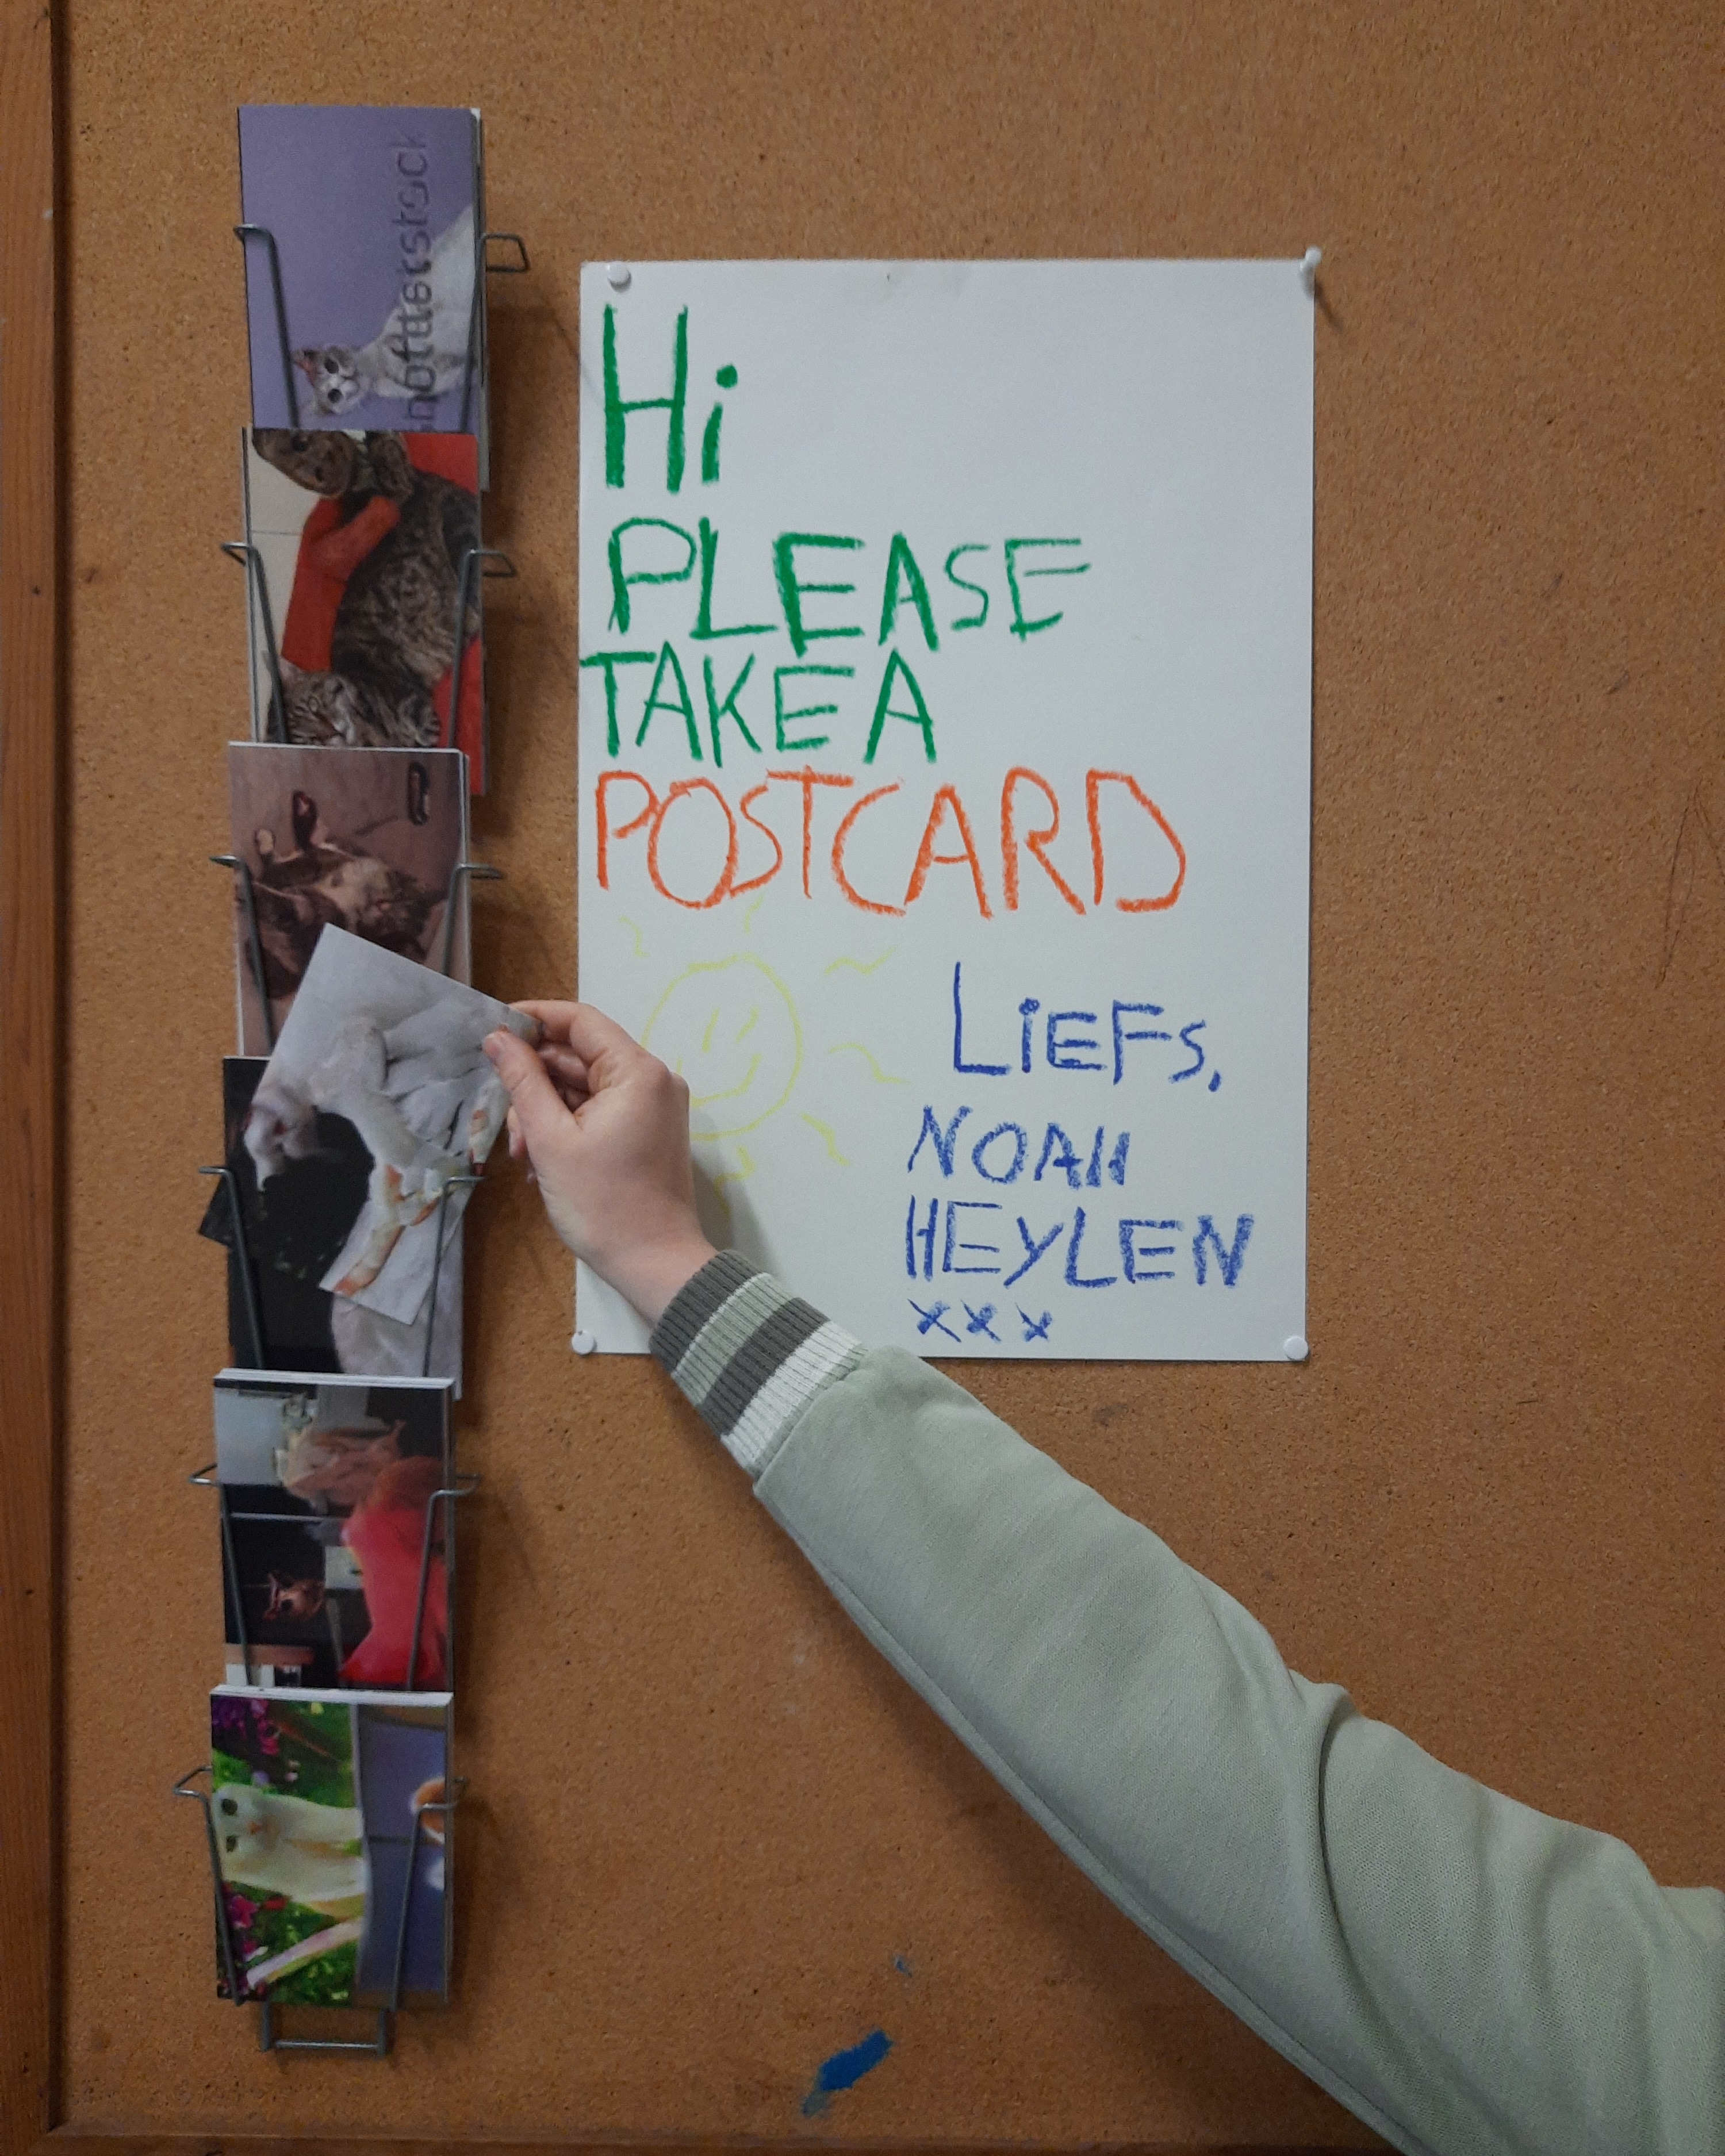 shutterstock
Hi
PLEASE
TAKE A
POSTCARD
LiEFS,
NOAH
HEYLEN
xxx